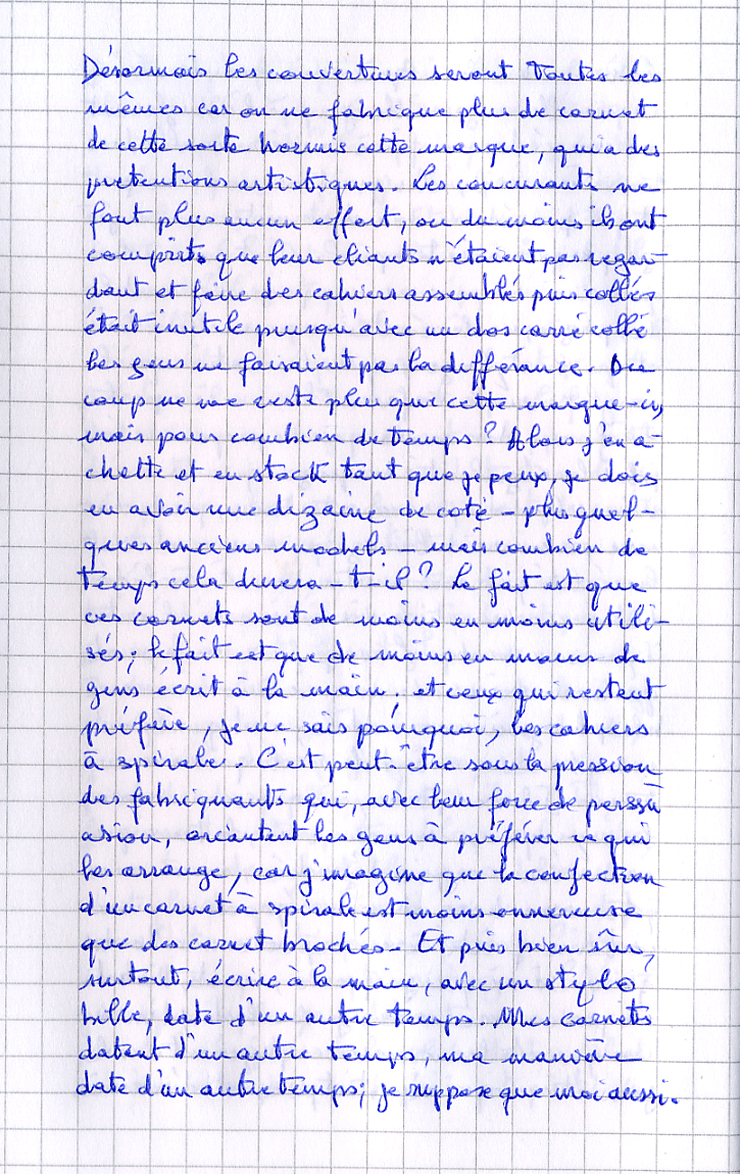 Désormais les couvertures seront toutes les
mêmes car on ne fabrique plus de carnet
de cette sorte hormis cette marque, qui a des
pretentions artistiques. Les concurants ne
font plus aucun effort, ou du moins ils ont
compris que leur cliants n'étaient pas regar-
dant et faire des cahiers assemblés puis collés
était inutile puisqu'avec un dos carré collé
les gens ne faisaient pas la différance. Du
coup ne me reste plus que cette marque-ci,
mais pour combien de temps ? Alors j'en a-
chette et en stock tant que je peux, je dois
en avoir une dizaine de coté - plus quel-
ques anciens models - mais combien de
temps cela durera-t-il ? Le fait est que
ces carnets sont de moins en moins utili-
sés ; le fait est que de moins en moins de
gens écrit à la main. et ceux qui restent
préfère, je ne sais pourquoi, les cahiers
à spirale. C'est peut-être sous la pression
des fabriquants qui, avec leur force de perssu
asion, orientent les gens à préférer ce qui
les arrange, car j'imagine que la confection
d'un carnet à spirale est moins onnereuse
que des carnet brochés. Et puis bien sûr,
surtout, écrire à la main, avec un stylo
bille, date d'un autre temps. Mes carnets
datent d'un autre temps, ma manière
date d'un autre temps ; je suppose que moi aussi.